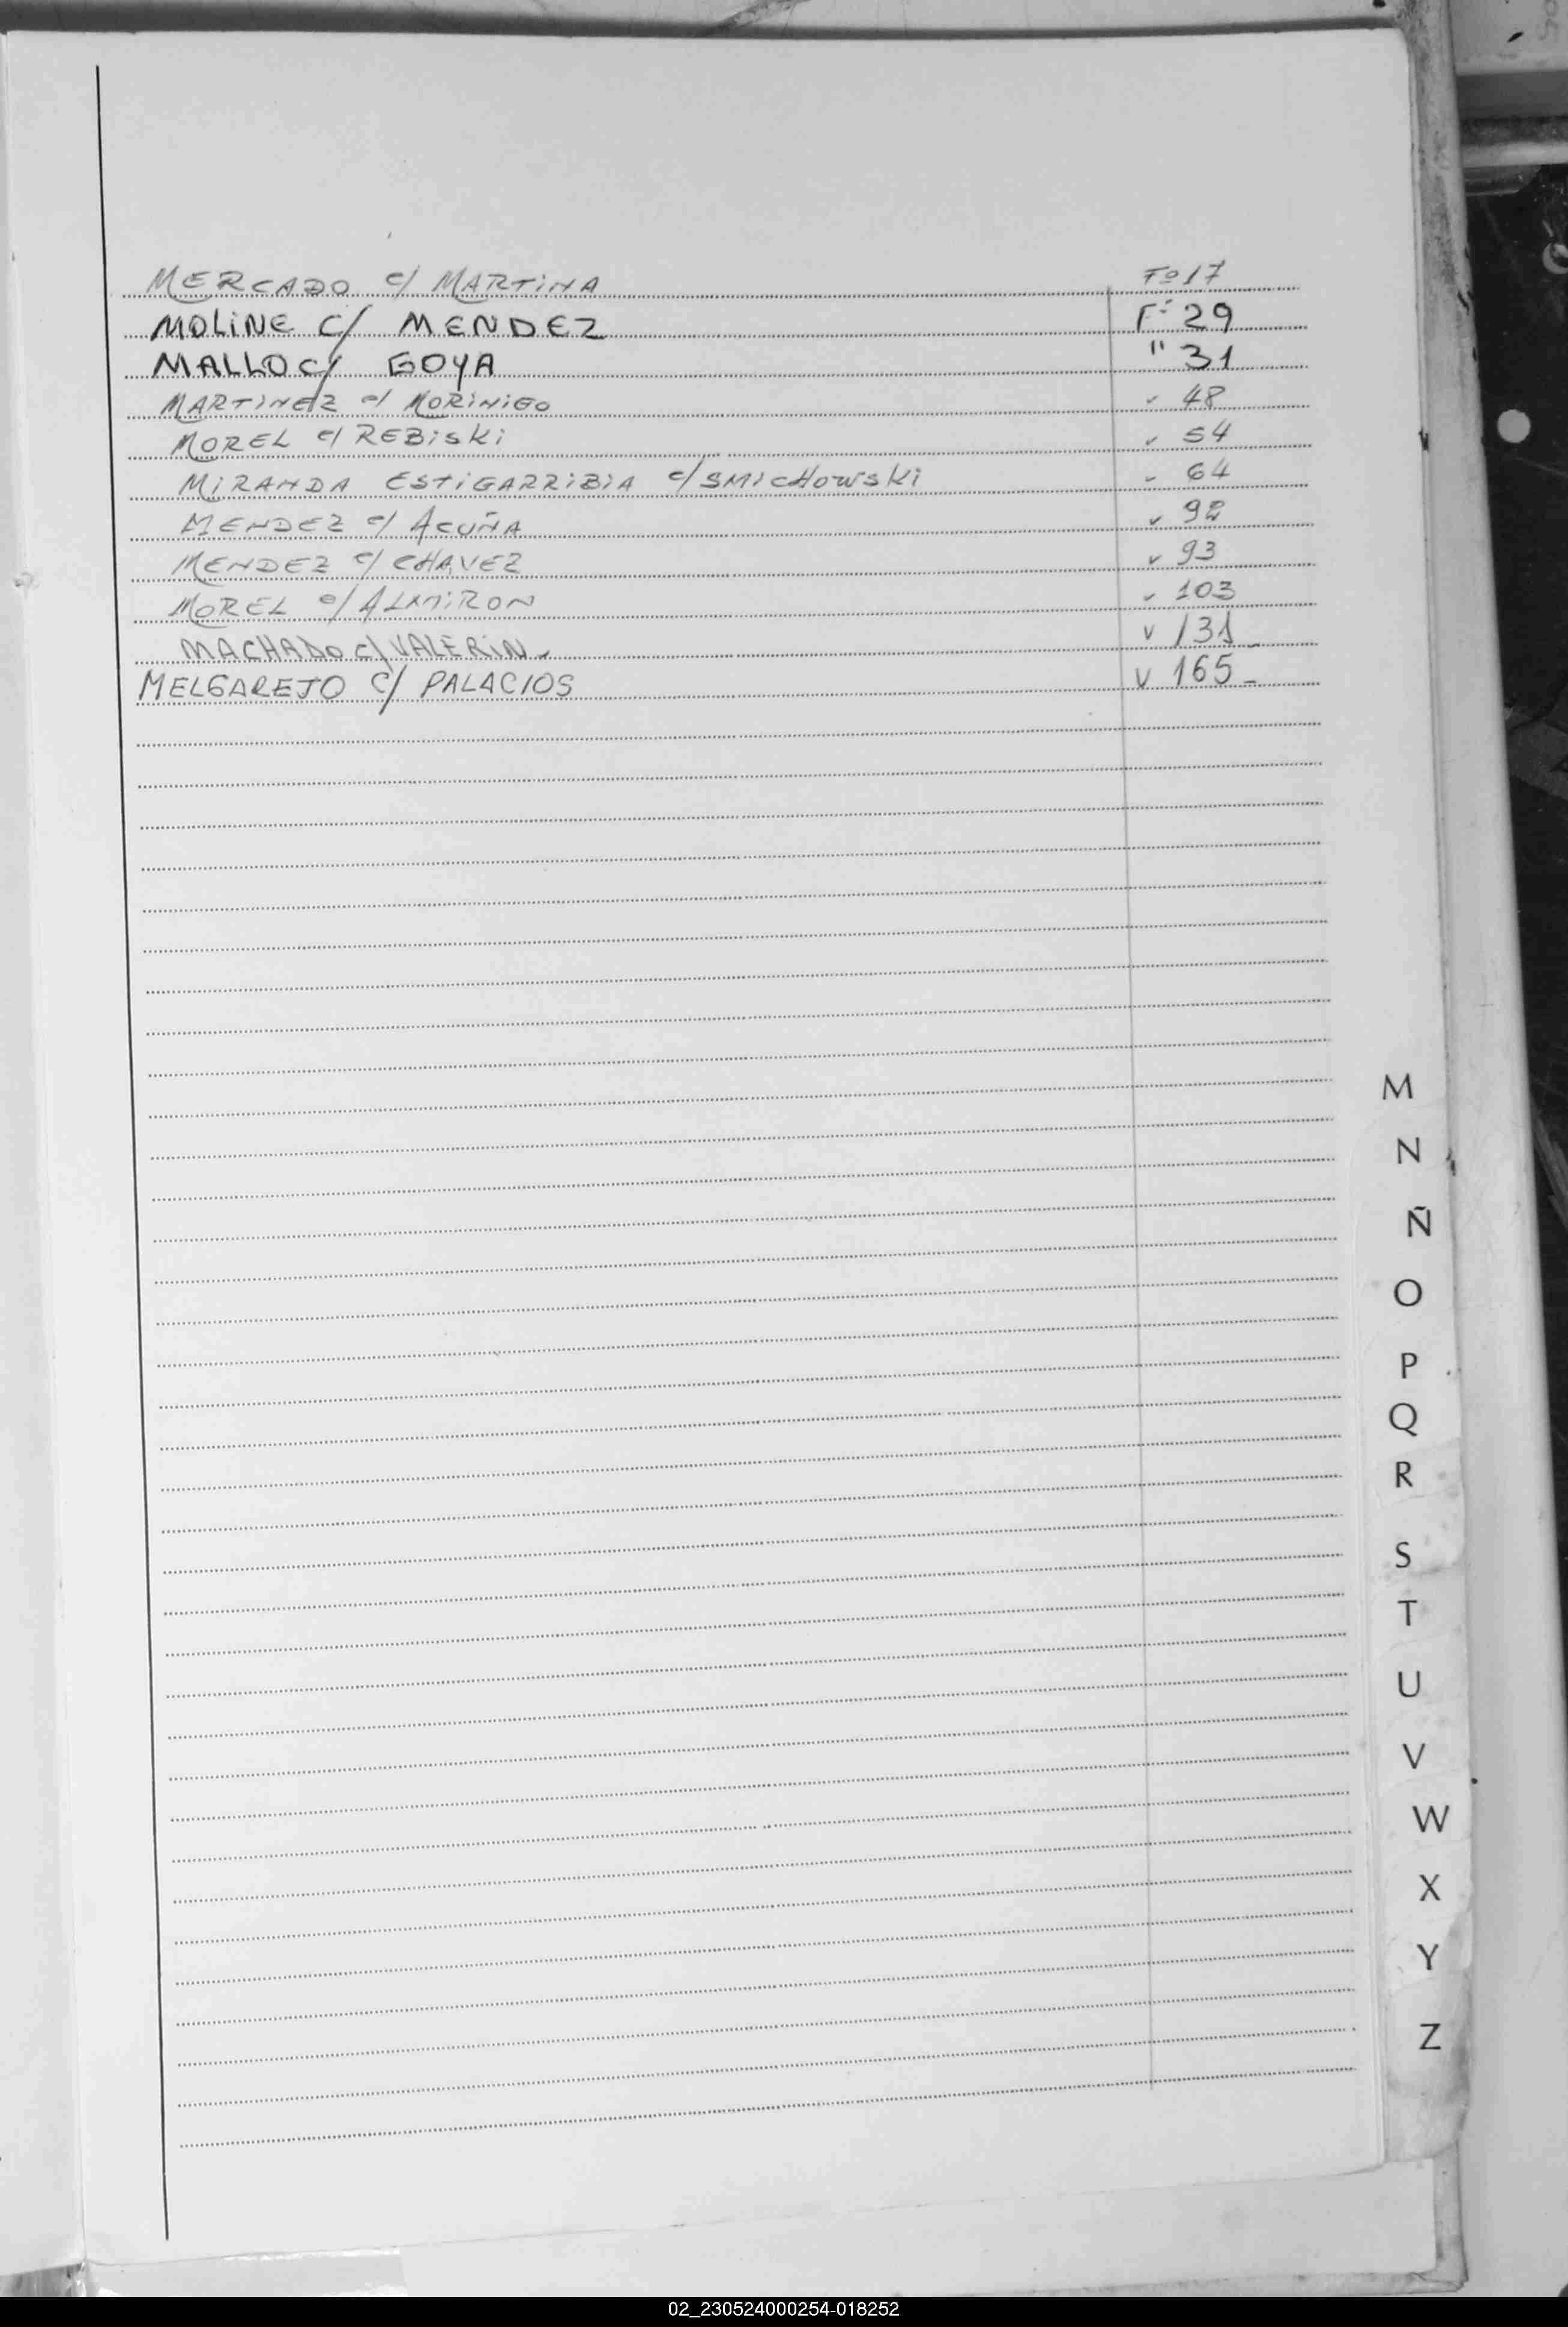 MERCADO c/ MARTINA Fº 17
MOLINE C/ MENDEZ Fº 29
MALLO C/ GOYA " 31
MARTINEZ c/ MORINIGO " 48
MOREL c/ REBISKI " 54
MIRANDA ESTIGARRIBIA c/ SMICHOWSKI " 64
MENDEZ c/ ACUÑA " 92
MENDEZ c/ CHAVEZ " 93
MOREL c/ ALMIRON " 103
MACHADO c/ VALERIN. v 131_
MELGAREJO C/ PALACIOS v 165_
M
N
Ñ
O
P
Q
R
S
T
U
V
W
X
Y
Z
02_230524000254-018252